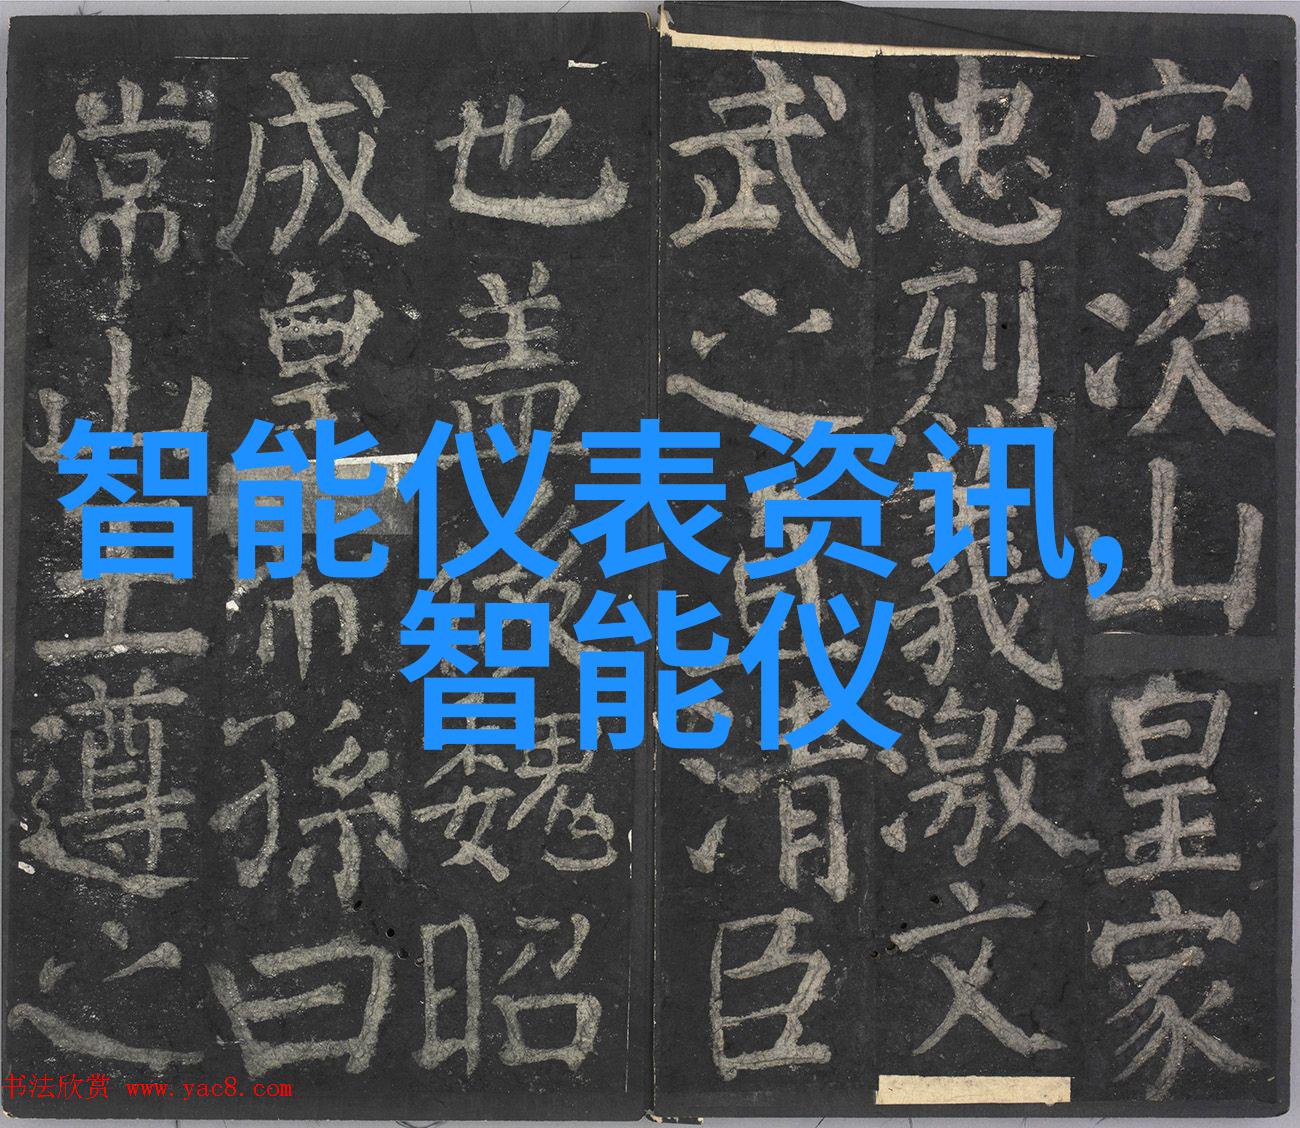 字次山皇家
忠列義激文
武之直清臣
也盖後魏昭
成皇帝孫曰
常山王遵之
智能仪表资讯,
智能仪
书法欣赏 www.yac8.com